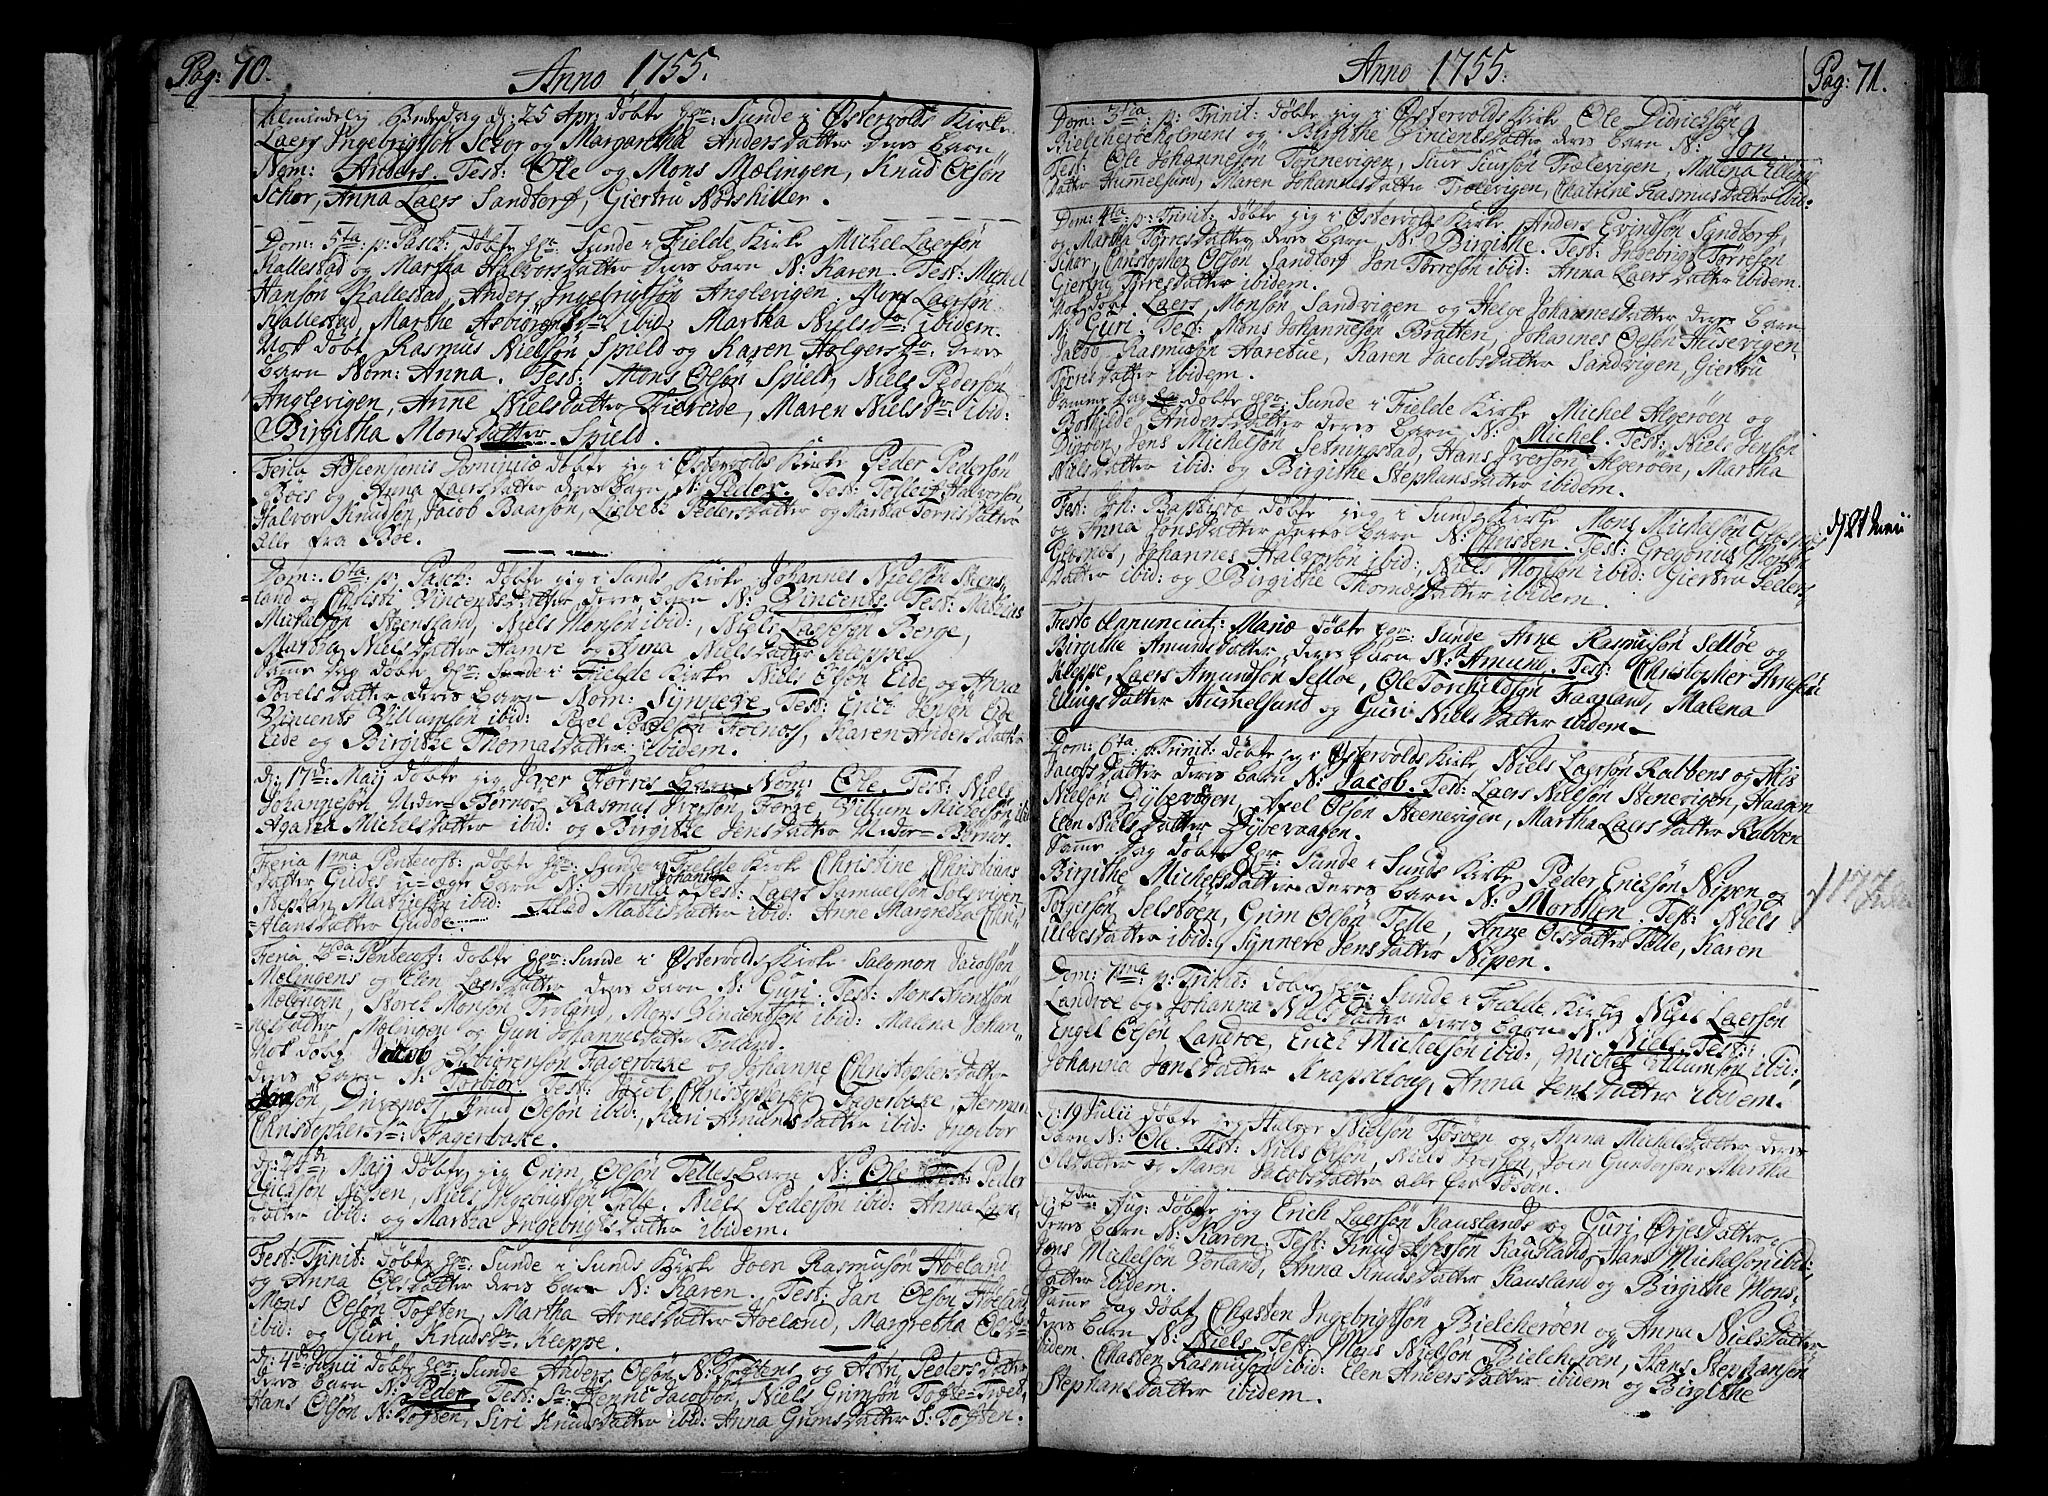 Pag: 70.
Anno 1755.
Almindelig Bededag d: 25 Apr: døbte Hr: Sunde i Østervolds Kirke
Laers Ingebrigtsøn Schor og Margaretha Andersdatter deres barn
Nom: Anders. Test: Ole og Mons Mælingen, Knud Olsøn
Schor, Anna Laers Sandtorf, Giertru
Dom: 5ta: p: Pasch: døbte Hr: Sunde i Fielde Kirke Michel Laersøn
Kallestad og Martha Halvorsdatter deres barn N: Karen. Test: Michel
Hansøn Kallestad, Anders Ingebrigtsøn Anglevigen, Mons Laersøn
Kallestad, Marthe ibid: Martha Nielsdr: ibidem.
Nok døbt Rasmus Nielsøn Spield og Karen Holgersdr: deres
barn Nom: Anna. Test: Mons Olsøn Spield, Niels Pedersøn
Anglevigen, Anne Nielsdatter Fiereide, Maren Nielsdr: ibid:
Birgitha Monsdatter Spield.
Feria Ascensionis Dominicæ døbte jeg i Østervolds Kirke Peder Pedersøn
Bøes og Anna Laersdatter deres barn N: Peder. Test: Tolleif Halvorsøn
Halvor Knudsen, Jacob Baarsøn, Lisbeth Pedersdatter og Martha Torrisdatter
Alle fra Bøe.
Dom: 6ta: p: Pasch: døbte jeg i Sunds Kirke Johannes Nielsøn Steens-
land og Christi Vincentsdatter deres barn N: Vincents. Test: Mathias
Michelsøn Steensland, Niels Monsøn ibid:, Niels Laersøn Berge,
Martha Nielsdatter Hamre og Anna Nielsdatter Kleppe.
Samme dag døbte Hr: Sunde i Fielde Kirke Niels Olsøn Eide og Anna
Povelsdatter deres barn Nom: Synneve. Test: Erich Jensøn Eide
Vincents Villumsøn ibid: Povelsøn, Karen Andersdatter
Eide og Birgithe Thomasdatter ibidem.
d: 17d: Maij døbte jeg Iver barn Nom: Ole. Test: Niels
Johannesøn Under-Bernes Rasmus Iversøn, Villum Michelsøn ibid
Agatha Michelsdatter ibid: og Birgithe Jensdatter Under-Bernes.
Feria 1ma: Pentecost: døbte Hr: Sunde i Fielde Kirke Christine Christians
datter Guldes u-ægte barn N: Anna Johanna. Test: Laers Samuelsøn Solsvigen,
Stephan Mathiesøn ibid: Mathisdatter ibid: Anne Margretha Chri-
Hansdatter Gudde.
Feria Pentecost: døbte Hr: Sunde i Østervolds Kirke Salomon Jacobsøn
Mælingens og Elen Laersdatter deres barn N: Guri. Test: Mons
Mælingen, Monsøn Troland, Mons Vincentsøn ibid: Malena Johan-
nesdatter Mælingen og Guri Johannesdatter Troland.
Nok døbt Jacob Asbiørensøn Fagerbake og Johanne Christophersdatter
deres barn N: Torbior. Test: Jacob Christophersøn Fagerbake, Herman
Drivenes, Knud Olsøn ibid: Kari Amundsdatter ibid: Ingebor
Christophersdr: Fagerbake.
d: 21de Maij døbte jeg Grim Olsøn Telles barn N: Ole Test: Peder
Erichsøn Nipen, Niels Ingebrigtsøn Telle, Niels Pedersøn ibid: Anna Laers
datter ibid: og Martha Ingebrigtsdatter ibidem.
Fest: Trinit: døbte Hr: Sunde i Sunds Kirke Joen Rasmusøn Høeland
og Anna Olesdatter deres barn N: Karen. Test: Jan Olsøn Høeland
Mons Olsøn Toften, Martha Arnesdatter Høeland, Margretha Olsdr:
ibid: og Guri Knudsdr: Kleppe.
d: 4d: Junii døbte Hr: Sunde Anders Olsøn N: Toftens og Astri Pedersdatter
deres barn N: Peder Test: Sr: Henric Jacobsøn, Niels Grimsøn Tofte-
Hans Olsøn N: Toften, Siri Knudsdatter ibid: Anna Grimsdatter S: Toften.
Pag: 71.
Anno 1755.
Dom: 3tia: p: Trinit: døbte jeg i Østervolds Kirke Ole Didrichsøn
Bielcherøeholmens og Birgithe Vincentsdatter deres barn N: Jon
Test: Ole Johannesøn Tønnevigen, Siur Siursøn Trælevigen, Malena Ellings
datter Hummelsund, Maren Johannesdatter Trælevigen, Chatrine Rasmusdatter ibid:
Dom: 4ta: p: Trinit: døbte jeg i Østervolds Kirke Anders Sandtorf,
og Martha Torresdatter deres barn N: Birgithe. Test: Ingebrigt Torresøn
Schar, Christopher Olsøn Sandtorf Jon Torresøn ibid: Anna Laersdatter ibidem.
Giertru Torresdatter ibidem.
Nok døbt Laers Monsøn Sandvigen og Helge Johannesdatter deres barn
N: Guri. Test: Mons Johannesøn Bratten, Johannes Olsøn Hilsevigen,
Jacob Rasmusøn Aaretue, Karen Jacobsdatter Sandvigen, Giertru
Torrisdatter ibidem.
Samme Dag døbte Hr: Sunde i Fielde Kirke Michel Algerøen og
Bothilde Andersdatter deres barn N: Michel. Test: Niels Jensøn
Dyrøen, Jens Michelsøn Setningstad, Hans Iversøn Algerøen, Martha
Nielsdatter ibid: og Birgithe Stephansdatter ibidem.
Fest: Joh: Baptistæ døbte jeg i Sunds Kirke Mons Michelsøn Glesnes
og Anna Jonsdatter deres barn N: Christen. Test: Gregorius Monsøn
Glesnes, Johannes Halvorsøn ibid:, Niels Monsøn ibid: Giertru Peders
datter ibid: og Birgithe Thomasdatter ibidem.
d/21 Junii
Festo Annunciat: Mariæ døbte Hr: Sunde Arne Rasmusøn Selløe og
Birgithe Amundsdatter deres barn N: Amund. Test: Christopher Arnesøn
Kleppe, Laers Amundsøn Selløe, Ole Torchildsøn Faarland, Malena
Ellingsdatter Hummelsund og Guri Nielsdatter ibidem.
Dom: 6ta p: Trinit: døbte jeg i Østervolds Kirke, Niels Laersøn Rabbens og Alis
Jacobsdatter deres barn N: Jacob. Test: Laers Nielsøn Stenevigen, Haagen
Nielsøn Dybevogen, Axel Olsøn Steenevigen, Martha Laersdatter Rabben
Elen Nielsdatter Dybevaagen.
Samme Dag døbte Hr: Sunde i Sunds Kirke Peder Erichsøn Nipen og
Birgithe Michelsdatter deres barn N: Morthen. Test: Niels
Torgersøn Selstøen, Grim Olsøn Telle, Anne Olsdatter Telle, Karen
Ulvesdatter ibid: Synneve Jensdatter Nipen.
Dom: 7ma: p: Trinit: døbte Hr: Sunde i Fielde Kirke Niels Laersøn
Landrøe og Johanna Nielsdatter deres barn N: Niels. Test:
Engel Olsøn Landrøe, Erich Michelsøn ibid:, Michel Villumsøn ibid:,
Johanna Jensdatter Knapskog, Anna Jensdatter ibidem.
d: 19 Julii døbte jeg Halvor Nielsøn Tøsøen og Anna Michelsdatter deres
barn N: Ole. Test: Niels Olsøn, Niels Iversøn, Joen Gundersøn, Martha
Olsdatter og Maren Jacobsdatter alle fra Tøsøen.
d: 7den Aug: døbte jeg Erich Laersøn Kauslands og Guri datter
deres barn N: Karen. Test: Knud Kausland, Hans Michelsøn ibid:,
Jens Michelsøn Vorland, Anna Knudsdatter Kausland og Birgithe Mons-
datter ibidem.
Samme Dag døbt Chasten Ingebrigtsøn Bielcherøen og Anna Nielsdatter
deres barn N: Niels. Test: Mons Nielsøn Bielcherøen, Hans Stephansøn
ibidem. Chasten Rasmusøn ibid: Elen Andersdatter ibidem og Birgithe
Stephansdatter ibidem.